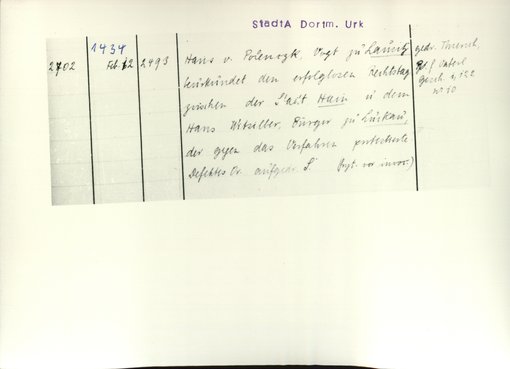 StadtA Dortm. Urk
2702
1434
Feb. 12
2493
Hans v. Polenczk, Vogt zu Lausitz
beurkundet den erfolglosen Rechtstag
zwischen der Stadt Hain u dem
Hans, Bürger zu Luckau,
der gegen das Verfahren protestierte
Defektes Or. aufgedr. S.
gedr.
Gesch. 1, 152
nr 10